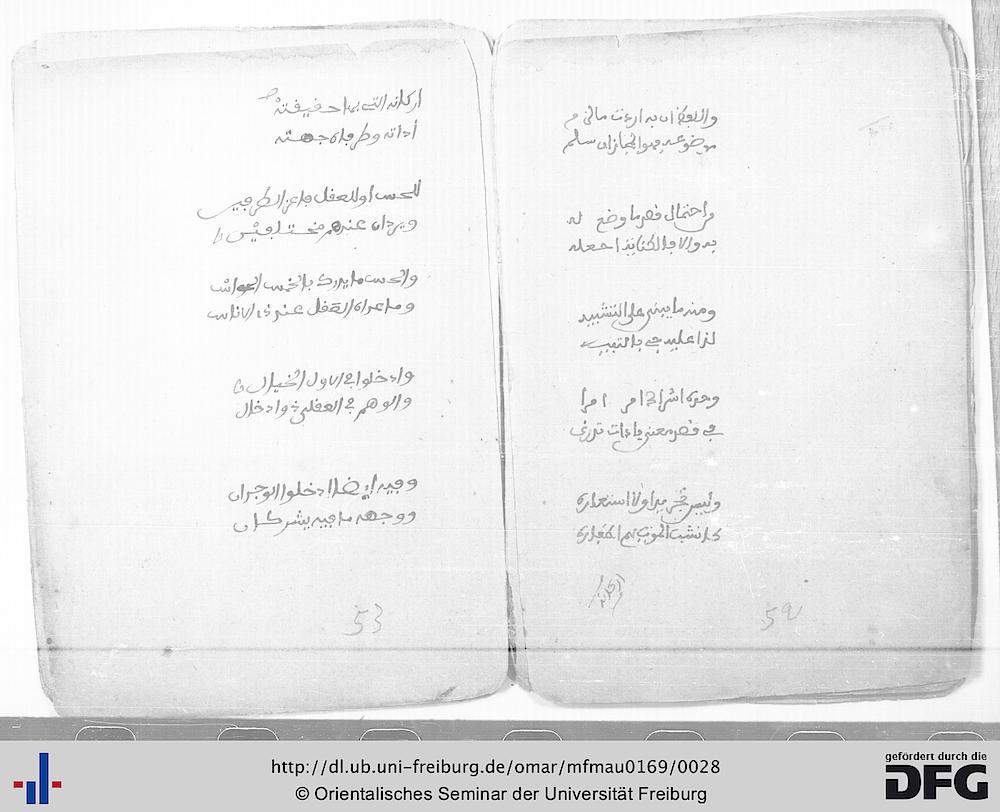 واللفظ ان به اردت ماله م
وضوعه فهو المجاز ان سلم
من احتمال قصد ما وضع له
بدءا والا فالكناية اجعله
ومنه ما يبنى على التشبيه
لذا عليه جيء بالتنبيه
وحده اشراك امر امرا
في قصد معنى باداة تدرى
وليس تجريدا ولا استعاره
كانشب الموت بهم اظفاره
اركانه
52
اركانه التي بها حقيقته
أداته وطرفاه جهته
للحس او للعقل فاعز الطرفين
ويردان عندهم مختلفين
والحس ما يدرك بالخمس الحواس
وما عداه العقل عند ذي الاناس
وادخلوا في الاول الخيالي
والوهم في العقلي ذو ادخال
وفيه ايضا ادخلوا الوجداني
ووجهه ما فيه يشركان
53
http://dl.ub.uni-freiburg.de/omar/mfmau0169/0028
© Orientalisches Seminar der Universität Freiburg
gefördert durch die
DFG